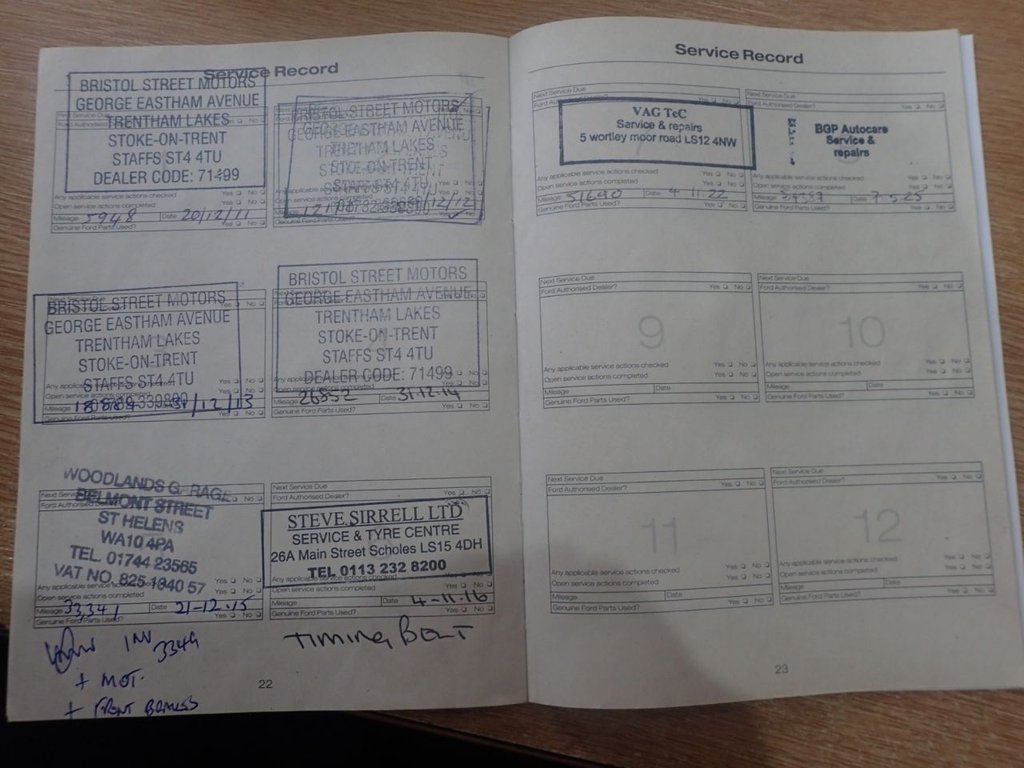 Service Record
BRISTOL STREET MOTORS
GEORGE EASTHAM AVENUE
TRENTHAM LAKES
STOKE-ON-TRENT
STAFFS ST4 4TU
DEALER CODE: 71499
Any applicable service actions checked Yes No
Open service actions completed Yes No
Mileage 5948 Date 20/12/11
Genuine Ford Parts Used? Yes No
BRISTOL STREET MOTORS
GEORGE EASTHAM AVENUE
TRENTHAM LAKES
STOKE-ON-TRENT
STAFFS ST4 4TU
/12/12
Genuine Ford Parts Used? Yes No
BRISTOL STREET MOTORS
GEORGE EASTHAM AVENUE
TRENTHAM LAKES
STOKE-ON-TRENT
STAFFS ST4 4TU
Mileage 31/12/13
Genuine Ford Parts Used? Yes No
BRISTOL STREET MOTORS
GEORGE EASTHAM AVENUE
TRENTHAM LAKES
STOKE-ON-TRENT
STAFFS ST4 4TU
DEALER CODE: 71499
Mileage 26852 Date 31.12.14
Genuine Ford Parts Used? Yes No
WOODLANDS G RAGE
BELMONT STREET
ST HELENS
WA10 4PA
TEL. 01744 23565
VAT NO. 825 1340 57
Any applicable service actions checked Yes No
Open service actions completed Yes No
Mileage 33,341 Date 21-12-15
Genuine Ford Parts Used? Yes No
INV 3349
+ MOT.
+ FRONT
Next Service Due
Ford Authorised Dealer? Yes No
STEVE SIRRELL LTD
SERVICE & TYRE CENTRE
26A Main Street Scholes LS15 4DH
TEL 0113 232 8200
Open service actions completed Yes No
Mileage Date 4-11-16
Genuine Ford Parts Used? Yes No
TIMING BELT
22
Service Record
Next Service Due
VAG TeC
Service & repairs
5 wortley moor road LS12 4NW
Any applicable service actions checked Yes No
Open service actions completed Yes No
Mileage 51640 Date 4 11.22
Genuine Ford Parts Used? Yes No
Next Service Due
Ford Authorised Dealer? Yes No
BGP Autocare
Service &
repairs
Any applicable service actions checked Yes No
Open service actions completed Yes No
Mileage Date 7.5.25
Genuine Ford Parts Used? Yes No
Next Service Due
Ford Authorised Dealer? Yes No
9
Any applicable service actions checked Yes No
Open service actions completed Yes No
Mileage Date
Genuine Ford Parts Used? Yes No
Next Service Due
Ford Authorised Dealer? Yes No
10
Any applicable service actions checked Yes No
Open service actions completed Yes No
Mileage Date
Genuine Ford Parts Used? Yes No
Next Service Due
Ford Authorised Dealer? Yes No
11
Any applicable service actions checked Yes No
Open service actions completed Yes No
Mileage Date
Genuine Ford Parts Used? Yes No
Next Service Due
Ford Authorised Dealer? Yes No
12
Any applicable service actions checked Yes No
Open service actions completed Yes No
Mileage Date
Genuine Ford Parts Used? Yes No
23